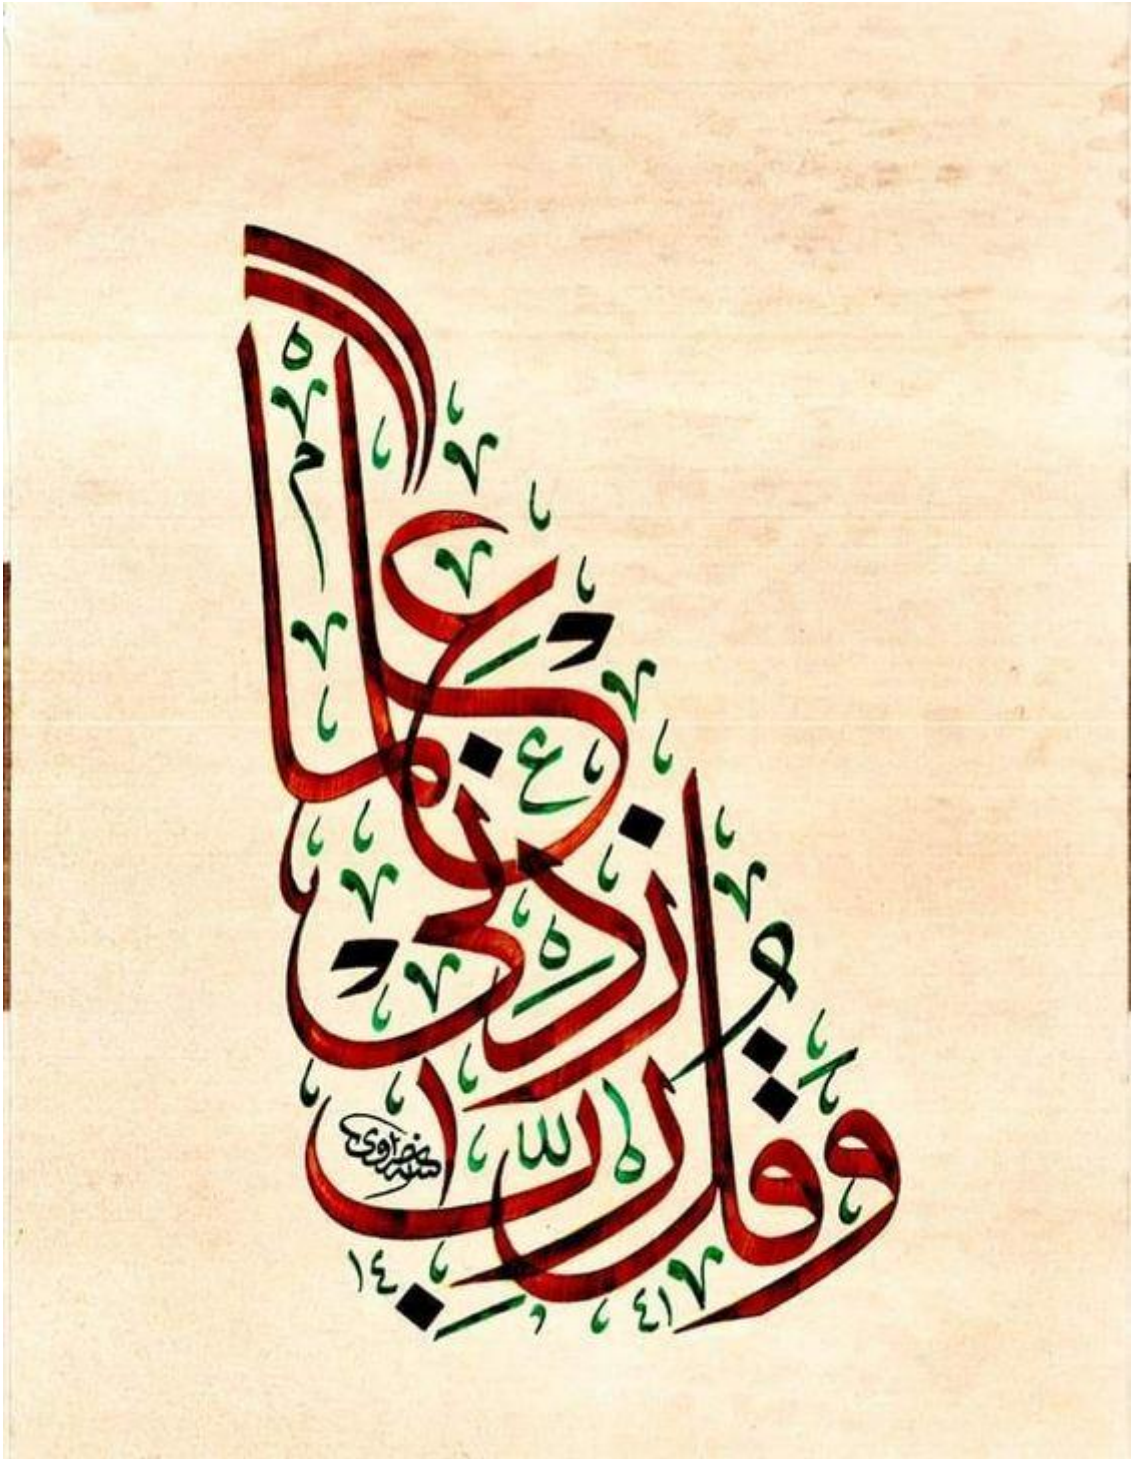 وَقُل رَّبِّ زِدْنِي عِلْمًا
١٤٤١